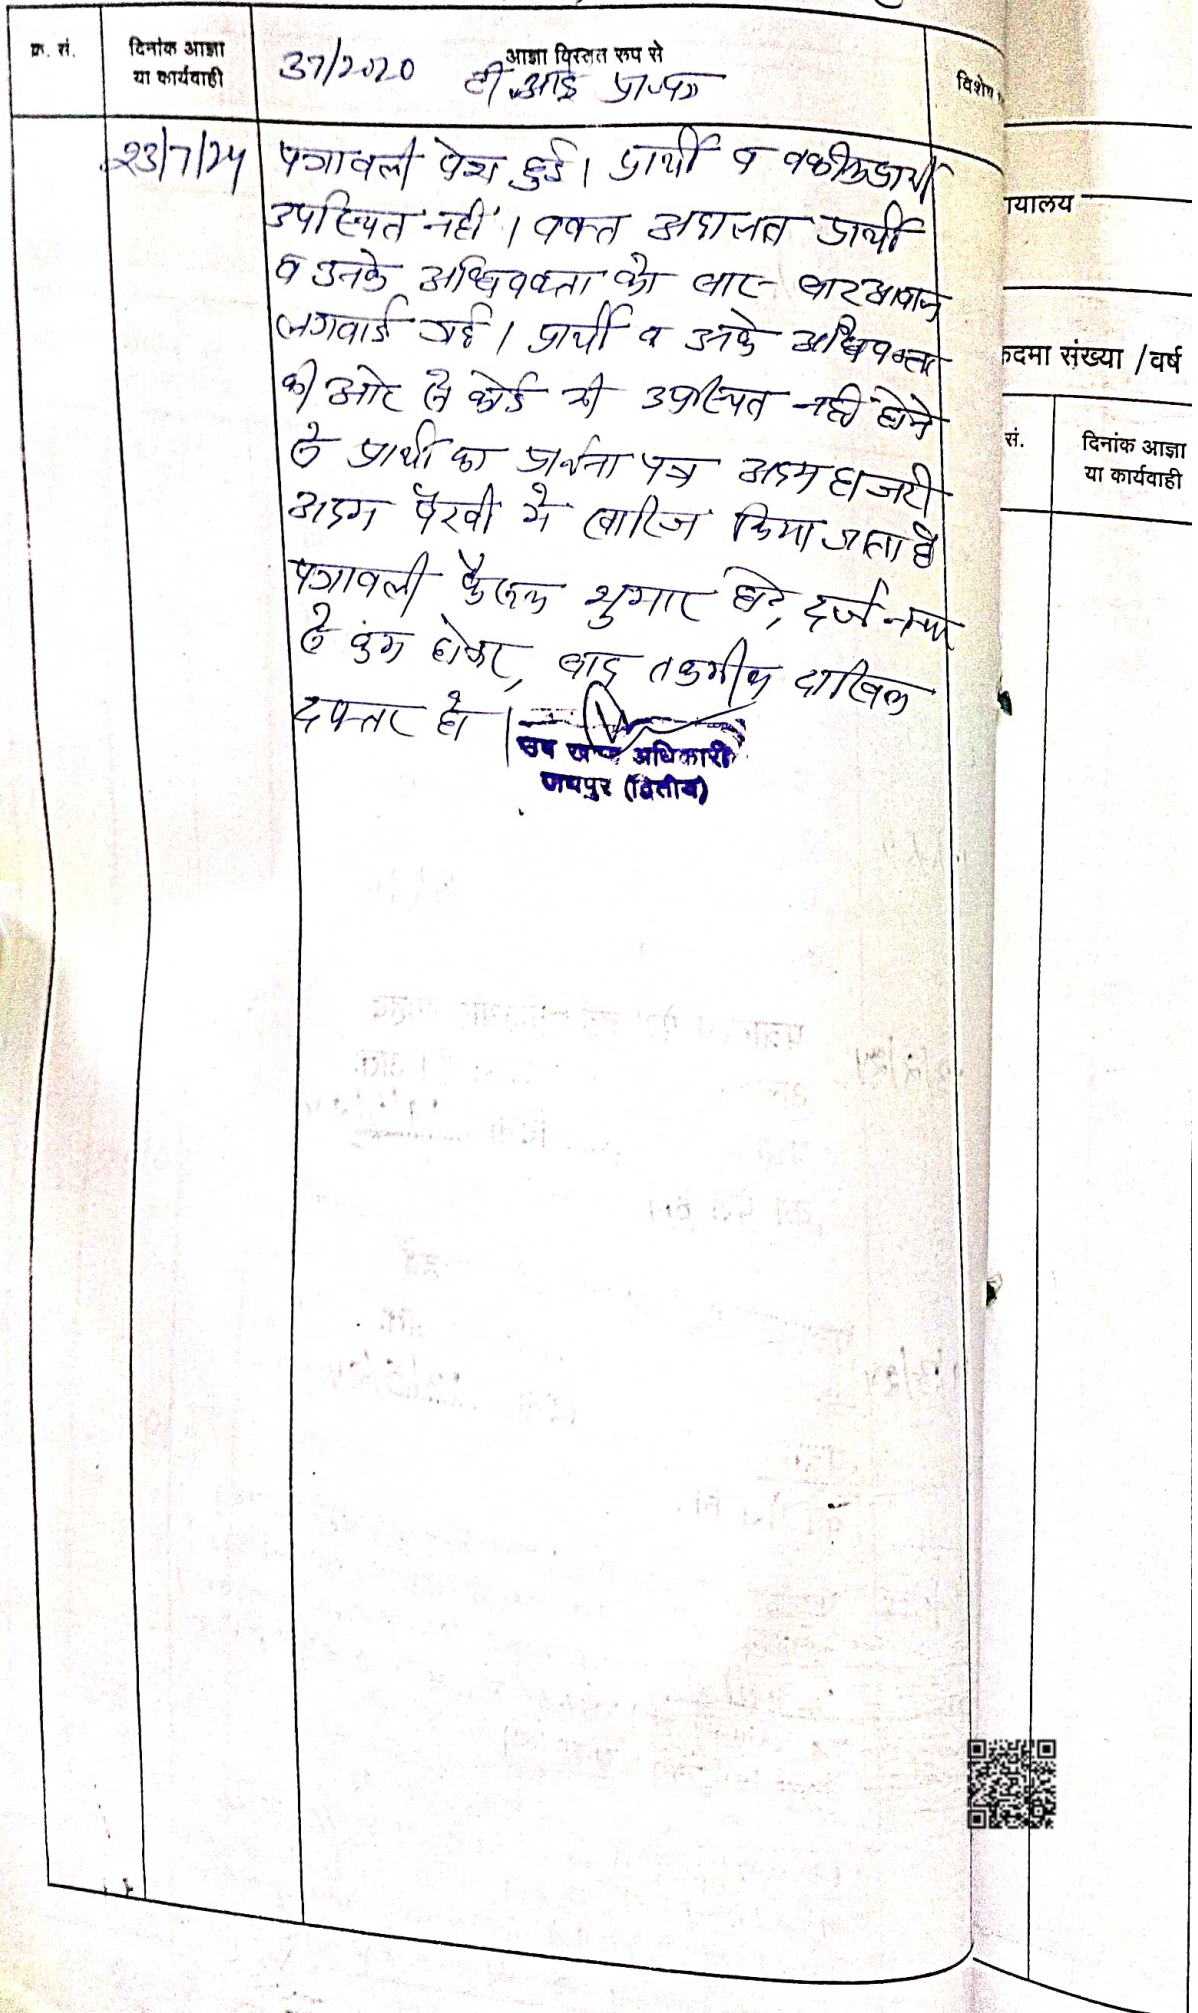 क्र. सं.
दिनांक आज्ञा
या कार्यवाही
37/2020
आज्ञा विस्तृत रूप से
टी.आई प्रा.पत्र
विशेष
23/7/24
पत्रावली पेश हुई। प्रार्थी व वकील प्रार्थी
उपस्थित नहीं। वक्त अदालत प्रार्थी
व उनके अधिवक्ता को बार-बार आवाज
लगवाई गई। प्रार्थी व उनके अधिवक्ता
की ओर से कोई भी उपस्थित नहीं होने
से प्रार्थी का प्रार्थना पत्र अदम हाजरी
अदम पैरवी में खारिज किया जाता है
पत्रावली फैसल शुमार होवे, दर्ज नम्बर
से कम होकर, बाद तकमील दाखिल
दफ्तर हो।
उप खण्ड अधिकारी
जयपुर (द्वितीय)
यायालय
कदमा संख्या / वर्ष
सं.
दिनांक आज्ञा
या कार्यवाही